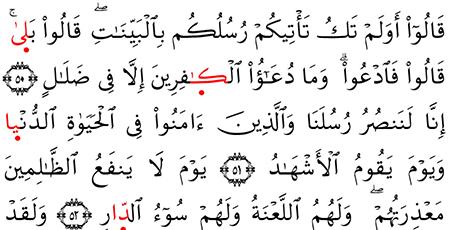 قَالُوٓا۟ أَوَلَمْ تَكُ تَأْتِيكُمْ رُسُلُكُم بِٱلْبَيِّنَٰتِ ۖ قَالُوا۟ بَلَىٰ ۚ
قَالُوا۟ فَٱدْعُوا۟ ۗ وَمَا دُعَٰٓؤُا۟ ٱلْكَٰفِرِينَ إِلَّا فِى ضَلَٰلٍ ٥٠
إِنَّا لَنَنصُرُ رُسُلَنَا وَٱلَّذِينَ ءَامَنُوا۟ فِى ٱلْحَيَوٰةِ ٱلدُّنْيَا
وَيَوْمَ يَقُومُ ٱلْأَشْهَٰدُ ٥١ يَوْمَ لَا يَنفَعُ ٱلظَّٰلِمِينَ
مَعْذِرَتُهُمْ ۖ وَلَهُمُ ٱللَّعْنَةُ وَلَهُمْ سُوٓءُ ٱلدَّارِ ٥٢ وَلَقَدْ